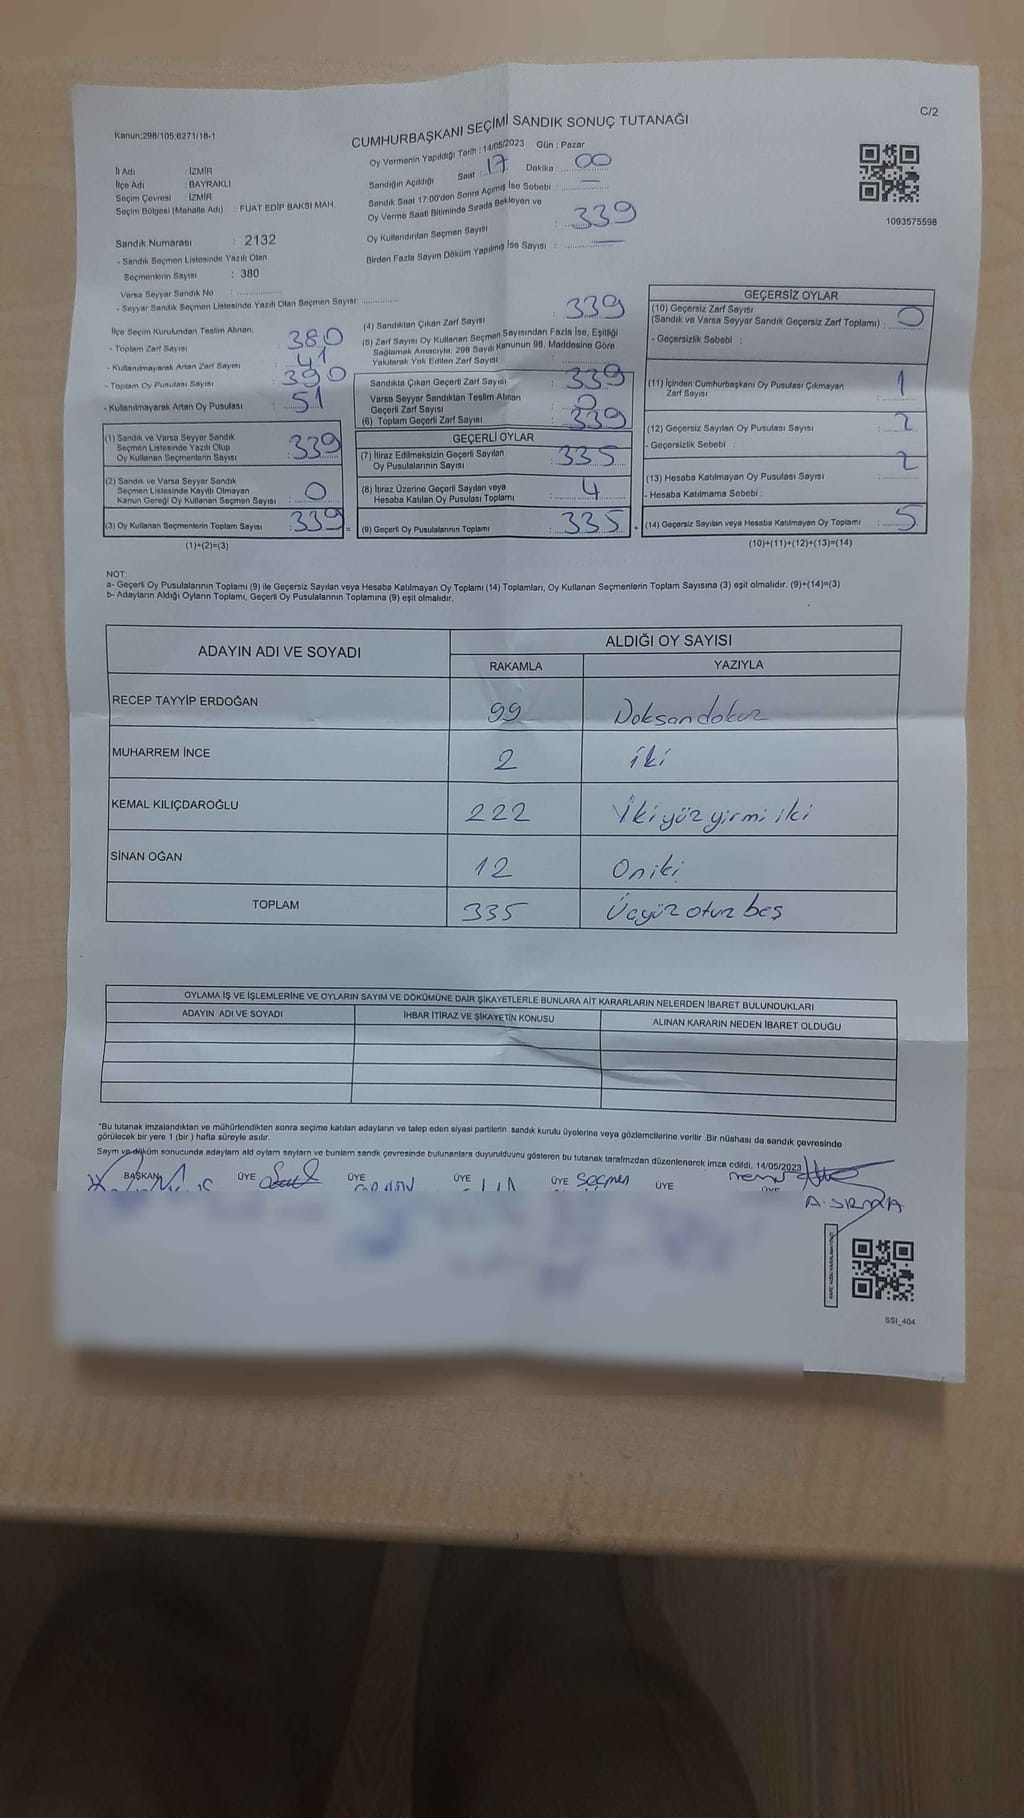 Kanun;298/105;6271/18-1
CUMHURBAŞKANI SEÇİMİ SANDIK SONUÇ TUTANAĞI
C/2
Oy Vermenin Yapıldığı Tarih : 14/05/2023 Gün : Pazar
Sandığın Açıldığı Saat : 17 Dakika : 00
Sandık Saat 17:00'den Sonra Açılmış İse Sebebi : —
Oy Verme Saati Bitiminde Sırada Bekleyen ve
Oy Kullandırılan Seçmen Sayısı 339
Birden Fazla Sayım Döküm Yapılmış İse Sayısı : —
İli Adı : İZMİR
İlçe Adı : BAYRAKLI
Seçim Çevresi : İZMİR
Seçim Bölgesi (Mahalle Adı) : FUAT EDİP BAKSI MAH.
Sandık Numarası : 2132
- Sandık Seçmen Listesinde Yazılı Olan
Seçmenlerin Sayısı : 380
Varsa Seyyar Sandık No :
- Seyyar Sandık Seçmen Listesinde Yazılı Olan Seçmen Sayısı :
1093575598
İlçe Seçim Kurulundan Teslim Alınan;
- Toplam Zarf Sayısı 380
- Kullanılmayarak Artan Zarf Sayısı 41
- Toplam Oy Pusulası Sayısı 390
- Kullanılmayarak Artan Oy Pusulası : 51
(1) Sandık ve Varsa Seyyar Sandık
Seçmen Listesinde Yazılı Olup
Oy Kullanan Seçmenlerin Sayısı : 339
(2) Sandık ve Varsa Seyyar Sandık
Seçmen Listesinde Kayıtlı Olmayan
Kanun Gereği Oy Kullanan Seçmen Sayısı : 0
(3) Oy Kullanan Seçmenlerin Toplam Sayısı : 339
(1)+(2)=(3)
(4) Sandıktan Çıkan Zarf Sayısı : 339
(5) Zarf Sayısı Oy Kullanan Seçmen Sayısından Fazla İse, Eşitliği
Sağlamak Amacıyla; 298 Sayılı Kanunun 98. Maddesine Göre
Yakılarak Yok Edilen Zarf Sayısı :
Sandıkta Çıkan Geçerli Zarf Sayısı : 339
Varsa Seyyar Sandıktan Teslim Alınan
Geçerli Zarf Sayısı : 0
(6) Toplam Geçerli Zarf Sayısı : 339
GEÇERLİ OYLAR
(7) İtiraz Edilmeksizin Geçerli Sayılan
Oy Pusulalarının Sayısı : 335
(8) İtiraz Üzerine Geçerli Sayılan veya
Hesaba Katılan Oy Pusulası Toplamı : 4
(9) Geçerli Oy Pusulalarının Toplamı : 335
GEÇERSİZ OYLAR
(10) Geçersiz Zarf Sayısı
(Sandık ve Varsa Seyyar Sandık Geçersiz Zarf Toplamı) : 0
- Geçersizlik Sebebi :
(11) İçinden Cumhurbaşkanı Oy Pusulası Çıkmayan
Zarf Sayısı : 1
(12) Geçersiz Sayılan Oy Pusulası Sayısı : 2
- Geçersizlik Sebebi :
(13) Hesaba Katılmayan Oy Pusulası Sayısı : 2
- Hesaba Katılmama Sebebi :
(14) Geçersiz Sayılan veya Hesaba Katılmayan Oy Toplamı : 5
(10)+(11)+(12)+(13)=(14)
NOT:
a- Geçerli Oy Pusulalarının Toplamı (9) ile Geçersiz Sayılan veya Hesaba Katılmayan Oy Toplamı (14) Toplamları, Oy Kullanan Seçmenlerin Toplam Sayısına (3) eşit olmalıdır. (9)+(14)=(3)
b- Adayların Aldığı Oyların Toplamı, Geçerli Oy Pusulalarının Toplamına (9) eşit olmalıdır.
ADAYIN ADI VE SOYADI
ALDIĞI OY SAYISI
RAKAMLA YAZIYLA
RECEP TAYYİP ERDOĞAN 99 Doksandokuz
MUHARREM İNCE 2 iki
KEMAL KILIÇDAROĞLU 222 İkiyüzyirmi iki
SİNAN OĞAN 12 Oniki
TOPLAM 335 Üçyüz otuz beş
OYLAMA İŞ VE İŞLEMLERİNE VE OYLARIN SAYIM VE DÖKÜMÜNE DAİR ŞİKAYETLERLE BUNLARA AİT KARARLARIN NELERDEN İBARET BULUNDUKLARI
ADAYIN ADI VE SOYADI İHBAR İTİRAZ VE ŞİKAYETİN KONUSU ALINAN KARARIN NEDEN İBARET OLDUĞU
*Bu tutanak imzalandıktan ve mühürlendikten sonra seçime katılan adayların ve talep eden siyasi partilerin sandık kurulu üyelerine veya gözlemcilerine verilir. Bir nüshası da sandık çevresinde
görülecek bir yere 1 (bir) hafta süreyle asılır.
Sayım ve döküm sonucunda adayların aldı oyların sayıların ve bunların sandık çevresinde bulunanlara duyurulduunu gösteren bu tutanak tarafımzdan düzenlenerek imza edildi. 14/05/2023
BAŞKAN ÜYE ÜYE ÜYE ÜYE Seçmen ÜYE ÜYE
A. SIRMA
SSI_404